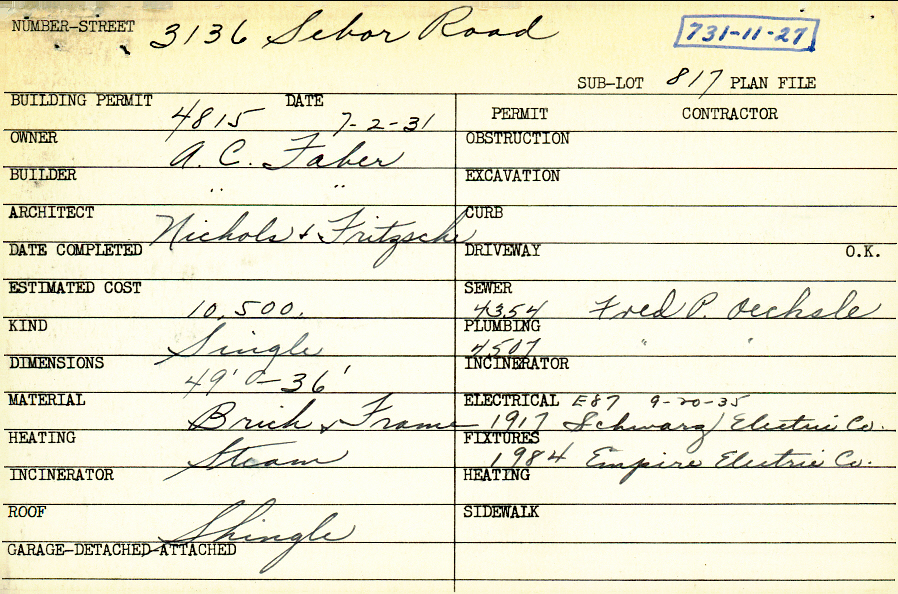 NUMBER-STREET 3136 Sebor Road
731-11-27
SUB-LOT 817 PLAN FILE
BUILDING PERMIT 4815 DATE 7-2-31
OWNER A. C. Faber
BUILDER " "
ARCHITECT Nichols & Fritzsche
DATE COMPLETED
ESTIMATED COST 10,500.
KIND Single
DIMENSIONS 49'0-36'
MATERIAL Brick & Frame
HEATING Steam
INCINERATOR
ROOF Shingle
GARAGE-DETACHED-ATTACHED
PERMIT CONTRACTOR
OBSTRUCTION
EXCAVATION
CURB
DRIVEWAY O.K.
SEWER 4354 Fred P. Oechsle
PLUMBING 4507 " "
INCINERATOR
ELECTRICAL E87 9-20-35
1917 Schwarz Electric Co.
FIXTURES 1984 Empire Electric Co.
HEATING
SIDEWALK